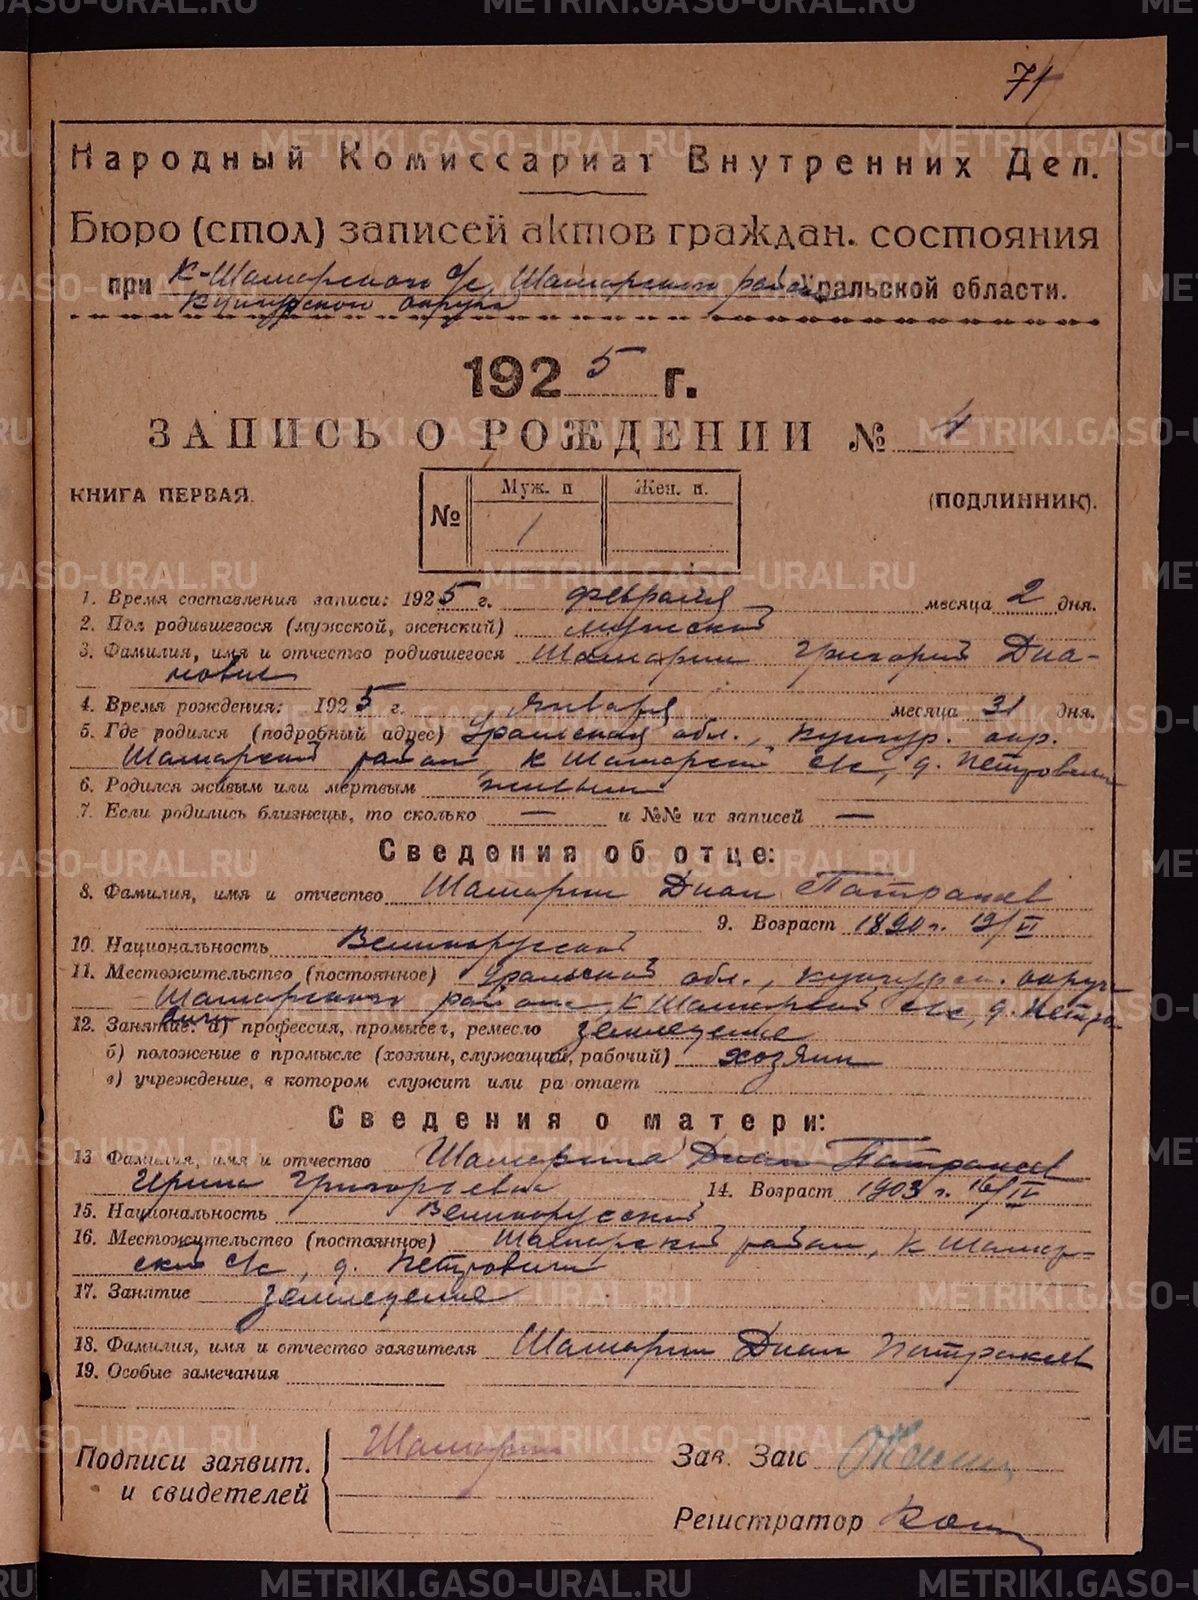 71
Народный Комиссариат Внутренних Дел.
Бюро (стол) записей актов граждан. состояния
при К-Шамарского с/с, Шамарского района Уральской области.
Кунгурского округа
1925 г.
ЗАПИСЬ О РОЖДЕНИИ № 4
КНИГА ПЕРВАЯ.
№ Муж. п Жен. п.
1
(ПОДЛИННИК).
1. Время составления записи: 1925 г. февраля месяца 2 дня.
2. Пол родившегося (мужской, женский) мужской
3. Фамилия, имя и отчество родившегося Шамарин Григорий Диа-
нович
4. Время рождения: 1925 г. января месяца 31 дня.
5. Где родился (подробный адрес) Уральская обл., Кунгур. окр.
Шамарский район, К Шамарский с/с, д. Петровичи
6. Родился живым или мертвым живым
7. Если родились близнецы, то сколько — и №№ их записей —
Сведения об отце:
8. Фамилия, имя и отчество Шамарин Диан Патракеев
9. Возраст 1890 г. 19/II
10. Национальность Великорусской
11. Местожительство (постоянное) Уральской обл., Кунгурск. округ
Шамарского района, К Шамарский с/с, д. Петро-
вичи
12. Занятие: а) профессия, промысел, ремесло земледелие
б) положение в промысле (хозяин, служащий, рабочий) хозяин
в) учреждение, в котором служит или ра отает
Сведения о матери:
13 Фамилия, имя и отчество Шамарина Диан Патракеев
Ирина Григорьевна 14. Возраст 1903 г. 16/IV
15. Национальность Великорусской
16. Местожительство (постоянное) Шамарский район, К Шамар-
ский с/с, д. Петровичи
17. Занятие земледелие
18. Фамилия, имя и отчество заявителя Шамарин Диан Патракеев
19. Особые замечания
Подписи заявит.
и свидетелей
Шамарин
Зав. Загс
Регистратор
METRIKI.GASO-URAL.RU